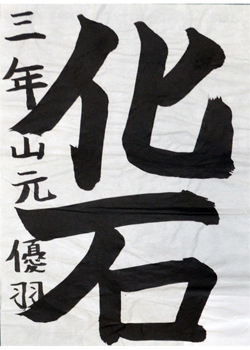 化石
三年山元優羽